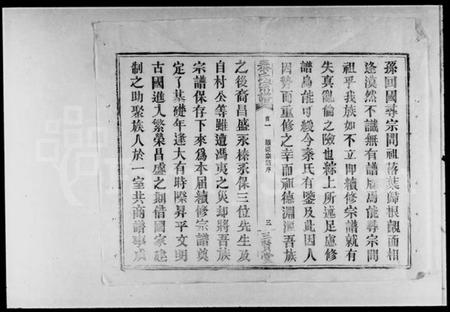 孫回國尋宗問祖落葉歸根覿面相
逢漠然不識無有譜牒焉能尋宗問
祖乎我族如不立即續修宗譜就有
失真亂倫之險也綜上所述足慮修
譜烏能可緩今秦氏有鑒及此因人
因勢而重修之幸而祖德淵源吾族
卷一
續修宗譜序
三
三賢堂
之後裔昌盛永榛承保三位先生及
自村公等雖遭馮夷之災却將吾族
宗譜保存下來為本届續修宗譜奠
定了基礎年逢大有時際昇平文明
古國進入繁榮昌盛之期借國家建
制之助聚族人於一室共商譜事成